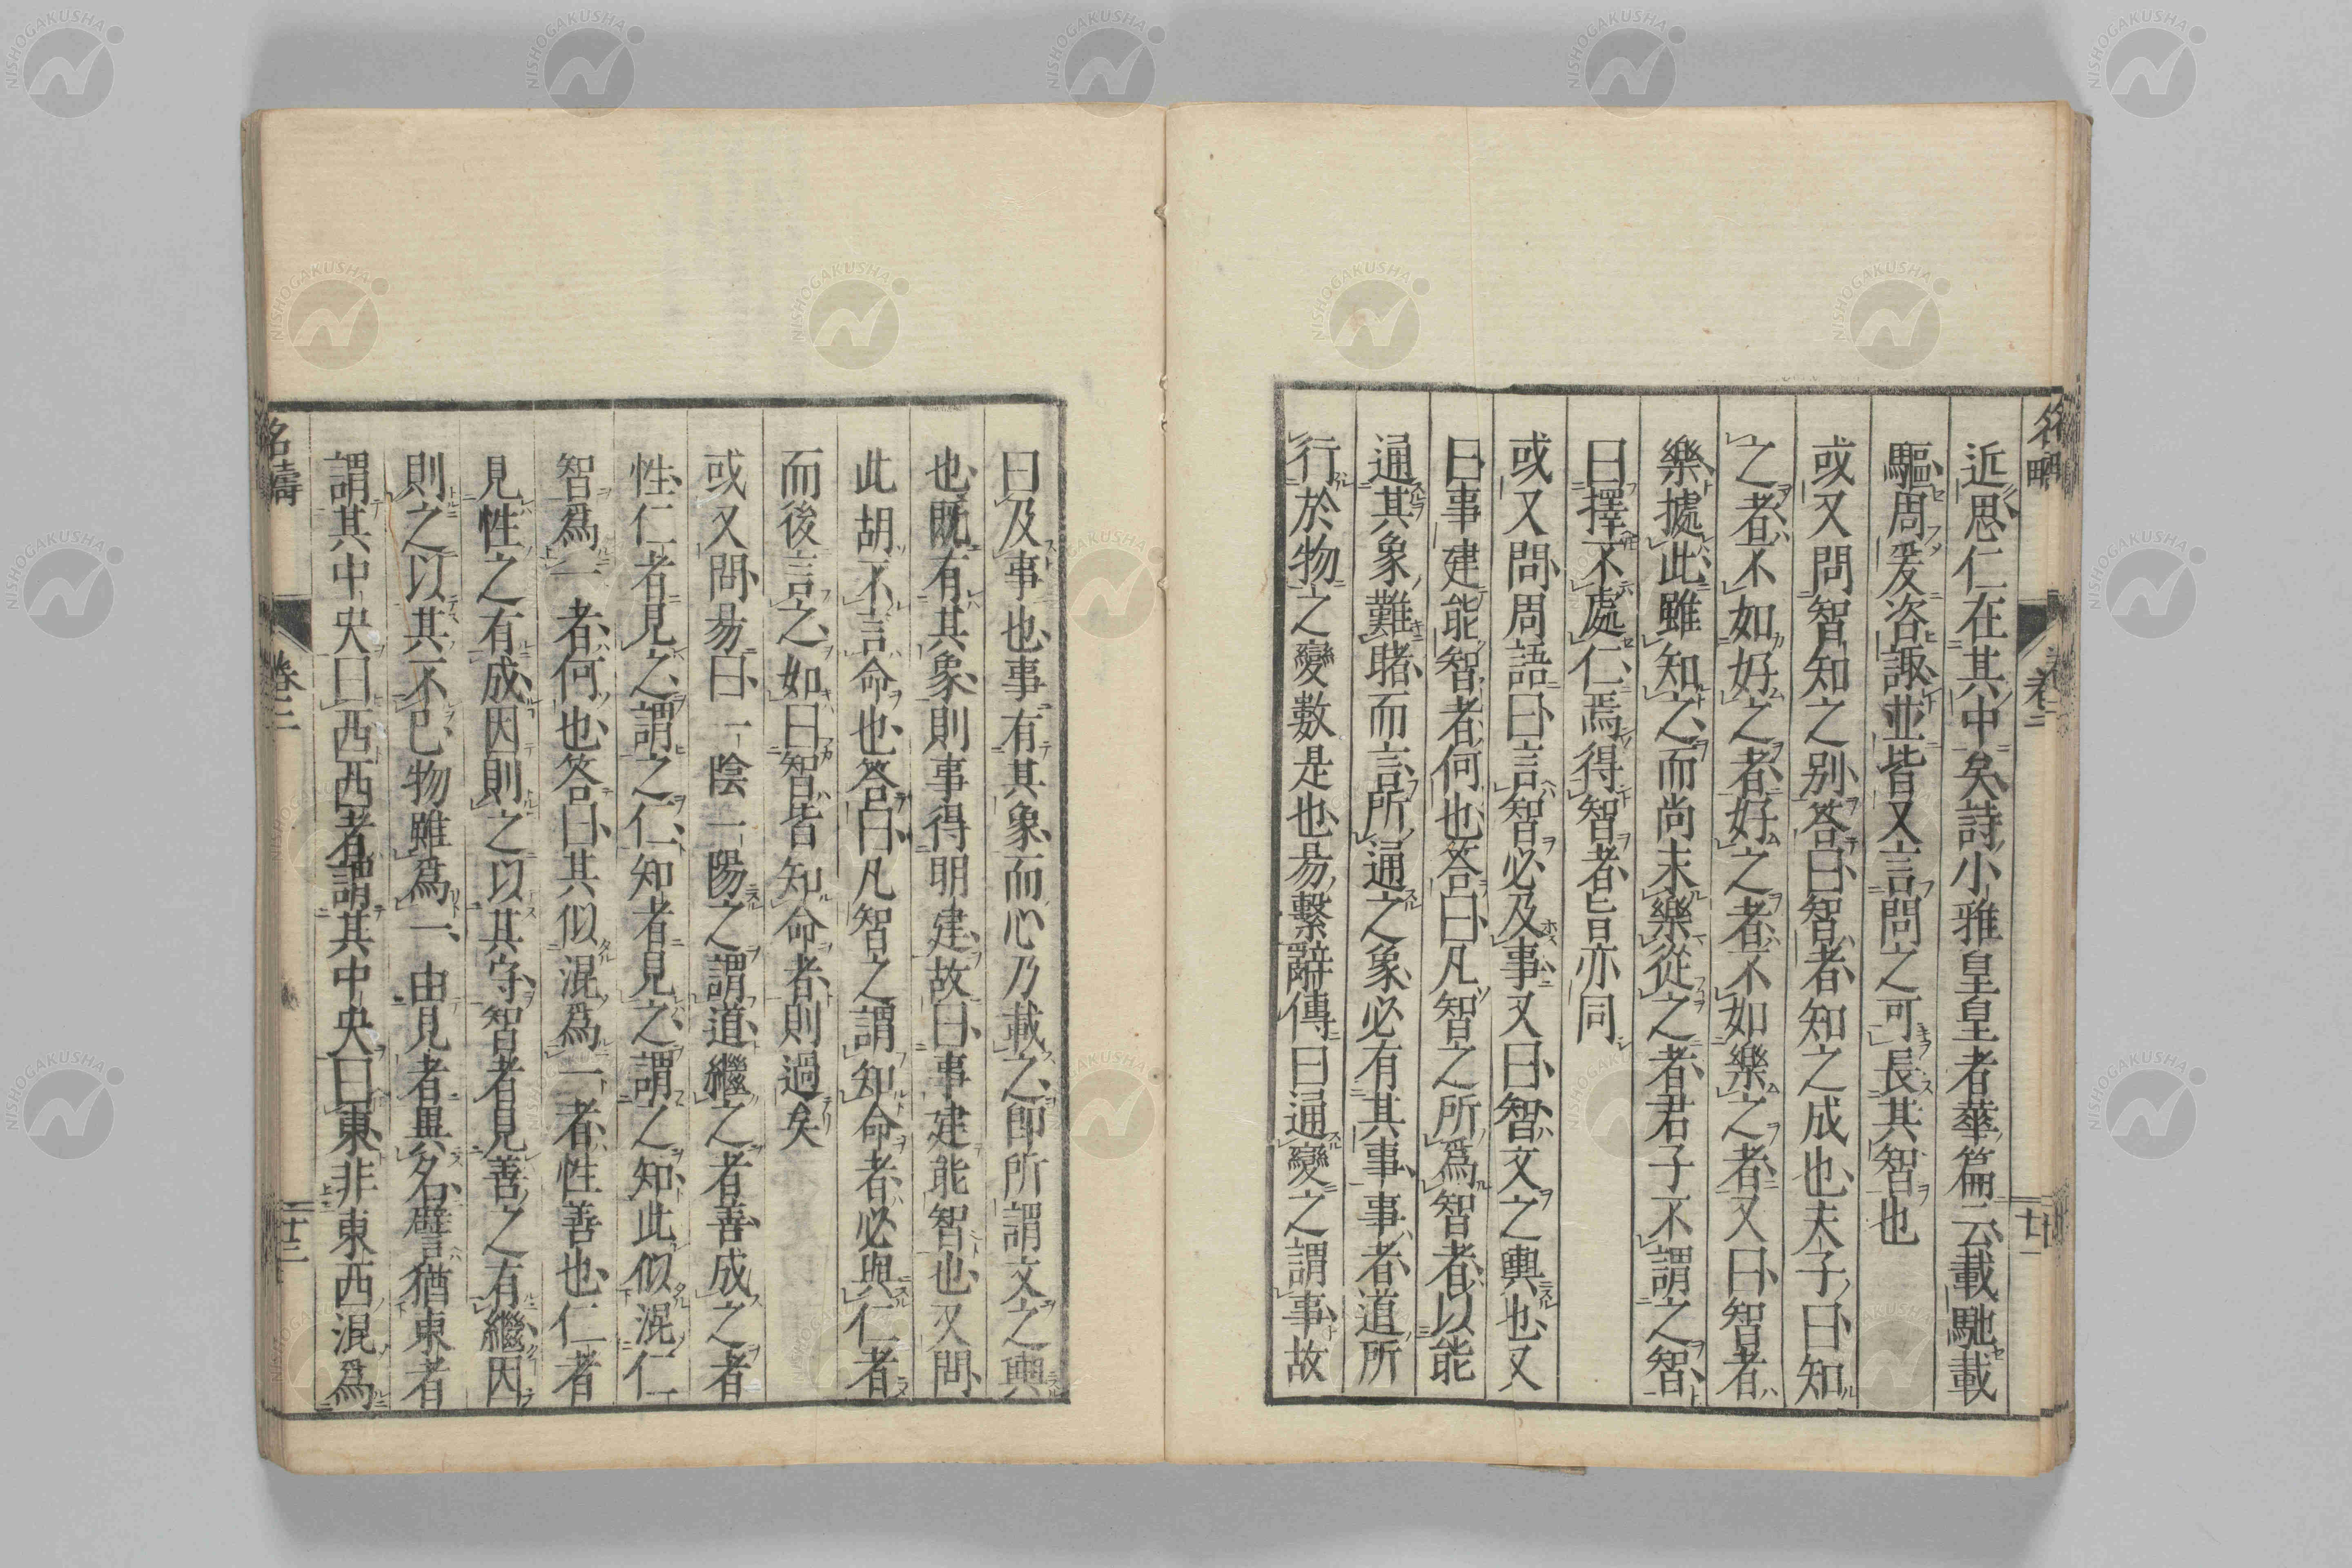 近思仁在其中矣詩小雅皇皇者華篇云載馳載
驅周爰咨諏並皆又言問之可長其智也
或又問智知之別答曰智者知之成也夫子曰知
之者不如好之者好之者不如樂之者又曰智者
樂據此雖知之而尚未樂從之者君子不謂之智
曰擇不處仁焉得智者旨亦同
或又問周語曰言智必及事又曰智文之輿也又
曰事建能智者何也答曰凡智之所爲智者以能
通其象難賭而言所通之象必有其事事者道所
行於物之變數是也易繫辭傳曰通變之謂事故
曰及事也事有其象而心乃載之即所謂文之輿
也既有其象則事得明建故曰事建能智也又問
此胡不言命也答曰凡智之謂知命者必與仁者
而後言之如曰智皆知命者則過矣
或又問易曰一陰一陽之謂道繼之者善成之者
性仁者見之謂之仁知者見之謂之知此似混仁
智爲一者何也答曰其似混爲一者性善也仁者
見性之有成因則之以其守智者見善之有繼因
則之以其不已物雖爲一由見者異名譬猶東者
謂其中央曰西西者謂其中央曰東非東西混爲
名疇
卷三
NISHOGAKUSHA